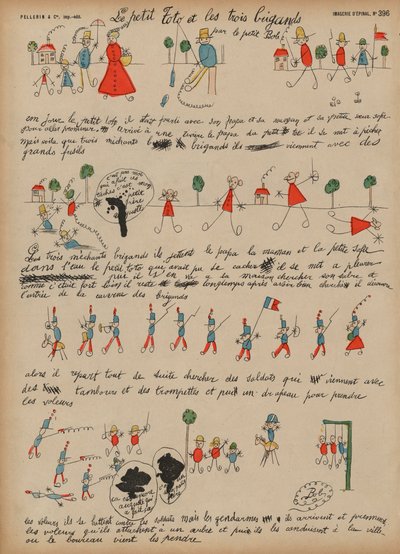 PELLERIN & Cie, imp.-édit.
IMAGERIE D'ÉPINAL, No 396
Le petit Toto et les trois brigands
par le petit Bob
un jour le petit toto il était parti avec son papa et sa maman et sa petite sœur sofie
pour aller promener arrivé à une rivière le papa du petit il se met à pêcher
mais voilà que trois méchants brigands ils viennent avec des
grands fusils
c'est pas moi
qui a fait
c'est mon
petit
frère
Les trois méchants brigands ils jettent le papa la maman et la petite sofie
dans l'eau le petit toto que avait pu se cacher il se met à pleurer
puis il s'en va a sa maison chercher son sabre et
comme c'était fort loin il reste longtemps après avoir bien cherché il découvre
l'entrée de la caverne des brigands
alors il repart tout de suite chercher des soldats qui viennent avec
des tambours et des trompettes et puis un drapeau pour prendre
les voleurs
Bob
les voleurs ils se battent contre les soldats mais les gendarmes ils arrivent et prennent
les voleurs qu'ils attachent à un arbre et puis ils les conduisent à leur ville
ou le bourreau vient les pendre